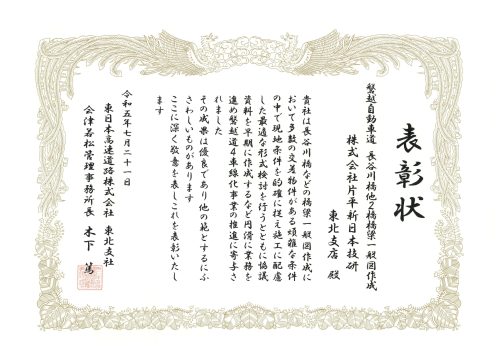 表彰状
磐越自動車道 長谷川橋他2橋橋梁一般図作成
株式会社片平新日本技研
東北支店 殿
貴社は長谷川橋などの橋梁一般図作成に
おいて多数の交差物件がある煩雑な条件
の中で現地条件を的確に捉え施工に配慮
した最適な形式検討を行うとともに協議
資料を早期に作成するなど円滑に業務を
進め磐越道4車線化事業の推進に寄与さ
れました
その成果は優良であり他の範とするにふ
さわしいものであります
ここに深く敬意を表しこれを表彰いたし
ます
令和五年七月二十一日
東日本高速道路株式会社 東北支社
会津若松管理事務所長 木下 篤